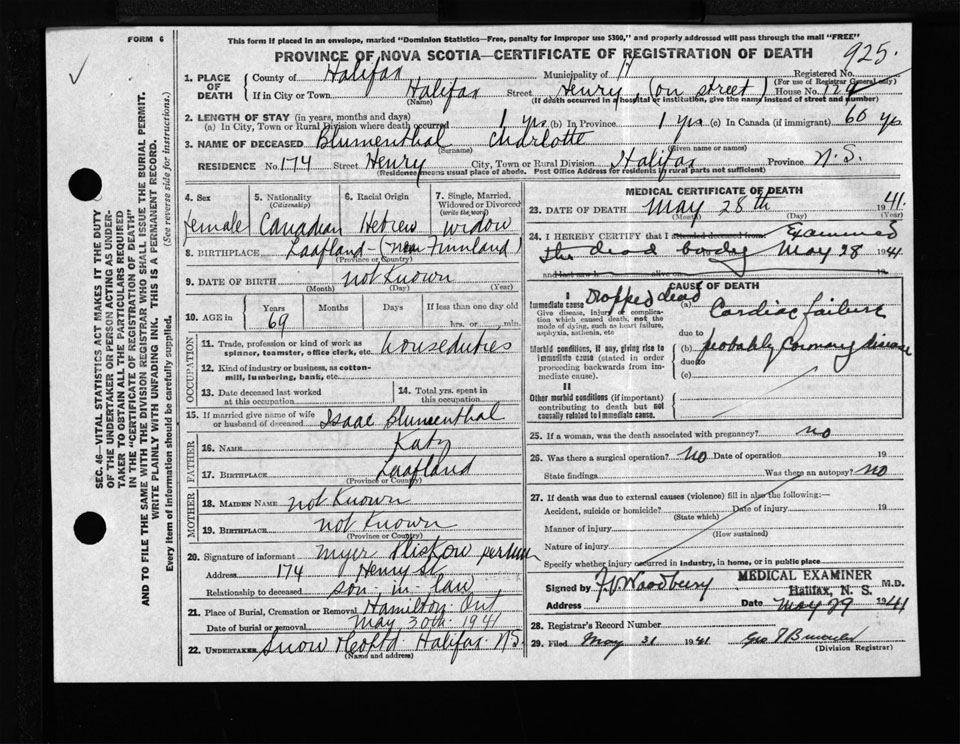 FORM 6
This form if placed in an envelope, marked "Dominion Statistics—Free, penalty for improper use $300," and properly addressed will pass through the mail "FREE"
PROVINCE OF NOVA SCOTIA—CERTIFICATE OF REGISTRATION OF DEATH
925.
1. PLACE OF DEATH
County of Halifax Municipality of H Registered No.
(For use of Registrar General only)
If in City or Town Halifax Street Henry, (on street) House No.
(Name) (If death occurred in a hospital or institution, give the name instead of street and number)
2. LENGTH OF STAY (in years, months and days)
(a) In City, Town or Rural Division where death occurred 1 yrs (b) In Province 1 yrs (c) In Canada (if immigrant) 60 yrs
3. NAME OF DECEASED Blumenthal Charlotte
(Surname) (Given name or names)
RESIDENCE No. 174 Street Henry City, Town or Rural Division Halifax Province N.S.
(Residence means usual place of abode. Post Office Address for residents in rural parts not sufficient)
4. Sex female
5. Nationality (Citizenship) Canadian
6. Racial Origin Hebrew
7. Single, Married, Widowed or Divorced (write the word) widow
8. BIRTHPLACE Laafland - (near Finnland)
(Province or Country)
9. DATE OF BIRTH not Known
(Month) (Day) (Year)
10. AGE in Years Months Days If less than one day old
69 hrs. or min.
OCCUPATION
11. Trade, profession or kind of work as spinner, teamster, office clerk, etc. houseduties
12. Kind of industry or business, as cotton-mill, lumbering, bank, etc.
13. Date deceased last worked at this occupation
14. Total yrs. spent in this occupation
15. If married give name of wife or husband of deceased Isaac Blumenthal
FATHER
16. Name Katz
17. Birthplace Laafland
(Province or Country)
MOTHER
18. Maiden Name not Known
19. Birthplace not Known
(Province or Country)
20. Signature of informant Myer Pliskow per
Address 174 Henry St
Relationship to deceased son in law
21. Place of Burial, Cremation or Removal Hamilton Ont
Date of burial or removal May 30th 1941
22. Undertaker Snow Halifax N.S.
(Name and address)
MEDICAL CERTIFICATE OF DEATH
23. DATE OF DEATH May 28th 1941.
(Month) (Day) (Year)
24. I HEREBY CERTIFY that I attended deceased from Examined
the dead body May 28 1941
and last saw h alive on 19
CAUSE OF DEATH
I
Immediate cause Dropped dead (a) Cardiac failure
Give disease, injury or complication which caused death, not the mode of dying, such as heart failure, asphyxia, asthenia, etc
due to
Morbid conditions, if any, giving rise to immediate cause (stated in order proceeding backwards from immediate cause).
(b) probably Coronary disease
due to
(c)
II
Other morbid conditions (if important) contributing to death but not causally related to immediate cause.
25. If a woman, was the death associated with pregnancy? no
26. Was there a surgical operation? No Date of operation 19
State findings Was there an autopsy? no
27. If death was due to external causes (violence) fill in also the following:—
Accident, suicide or homicide? Date of injury 19
(State which)
Manner of injury
(How sustained)
Nature of injury
Specify whether injury occurred in industry, in home, or in public place
Signed by F.V. Woodbury MEDICAL EXAMINER M.D.
Halifax, N. S.
Address Date May 29 1941
28. Registrar's Record Number
29. Filed May 31 1941
(Division Registrar)
SEC. 46—VITAL STATISTICS ACT MAKES IT THE DUTY
OF THE UNDERTAKER OR PERSON ACTING AS UNDER-
TAKER TO OBTAIN ALL THE PARTICULARS REQUIRED
IN THE "CERTIFICATE OF REGISTRATION OF DEATH"
AND TO FILE THE SAME WITH THE DIVISION REGISTRAR WHO SHALL ISSUE THE BURIAL PERMIT.
WRITE PLAINLY WITH UNFADING INK. THIS IS A PERMANENT RECORD.
Every item of information should be carefully supplied. (See reverse side for instructions.)